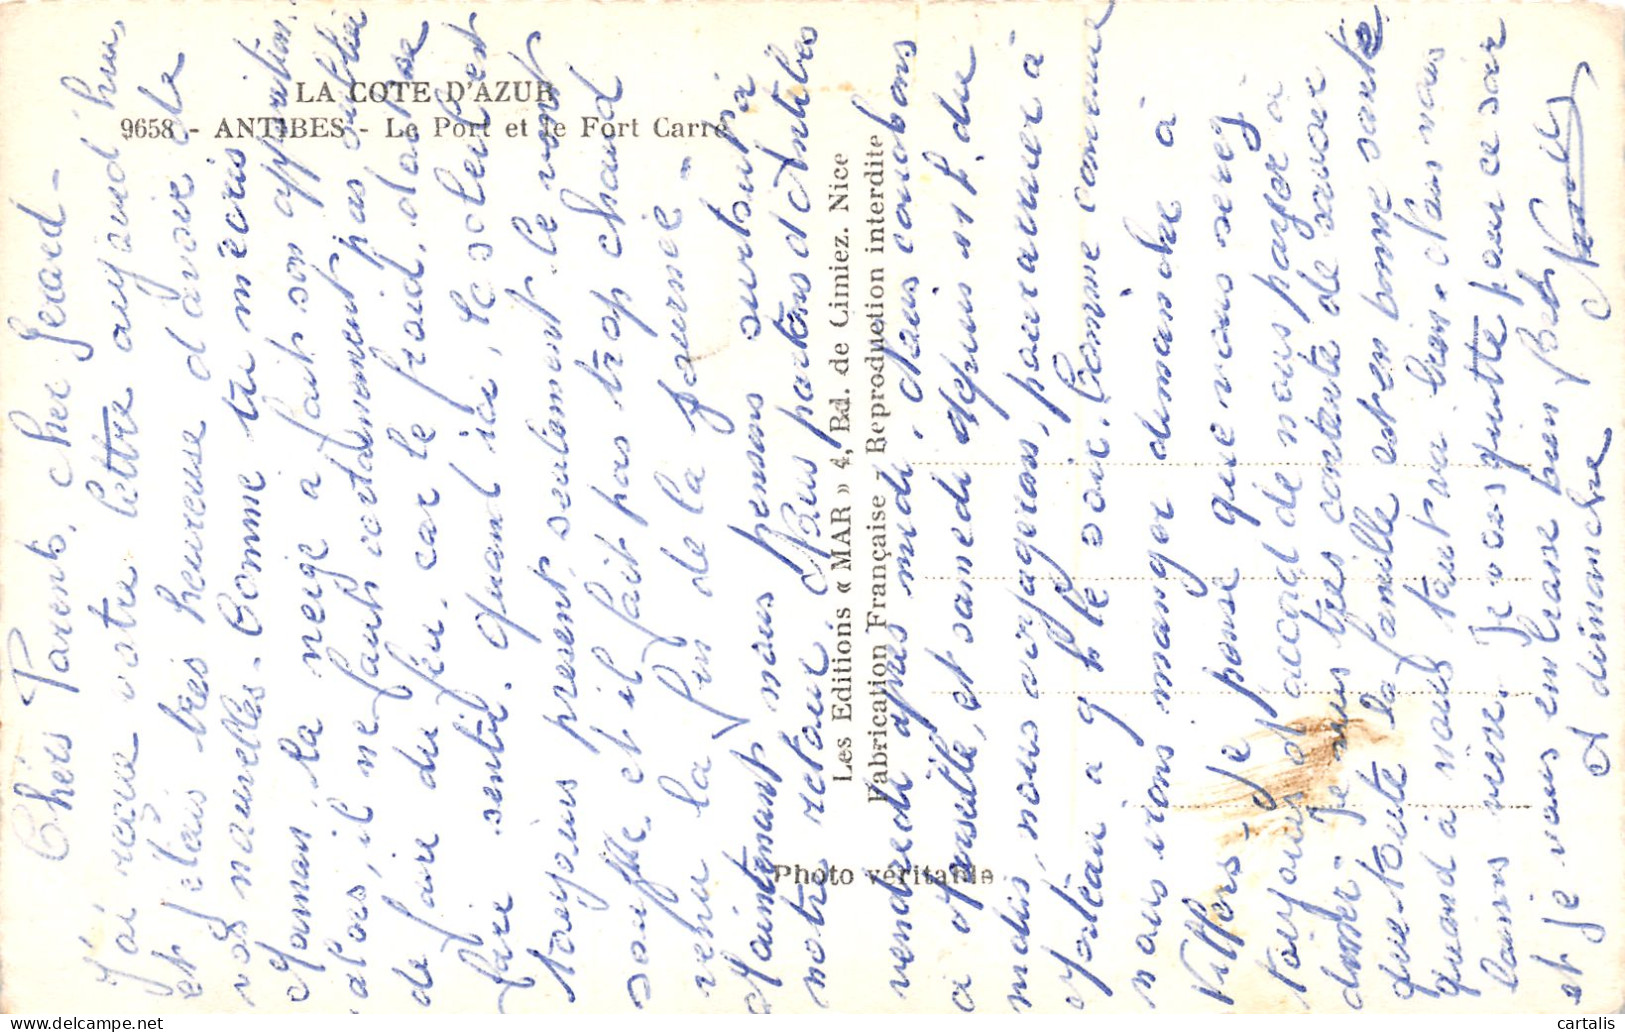 LA COTE D'AZUR
9658 - ANTIBES - Le Port et le Fort Carré
Les Editions « MAR » 4, Bd. de Cimiez. Nice
Fabrication Française - Reproduction interdite
Photo véritable
Chers Parents, cher Gérard -
J'ai reçue votre lettre aujourd'hui,
et j'étais très heureuse d'avoir de
vos nouvelles. Comme tu m'écris
Maman, la neige a fait son apparition.
alors, il ne faut certainement pas oublier
de faire du feu, car le froid, doit se
faire sentir. Quand ici, le soleil est
toujours présent, seulement le vent
souffle et il fait pas trop chaud
venu la fin de la journée -
Maintenant nous pensons surtout à
notre retour. Nous partons d'Antibes
vendredi après midi, nous couchons
à Marseille, et samedi depuis 11 h. du
matin, nous voyagerons, pour arriver à
à 9 h le soir. Comme convenu
nous irons manger dimanche à
Villers. Je pense que vous serez
toujours d'accord de nous payer à
dîner. Je suis très contente de savoir
que toute la famille est en bonne santé
quand à nous tout va bien. dans nous
Je vous quitte pour ce soir
et je vous embrasse bien fort
A dimanche
cartalis